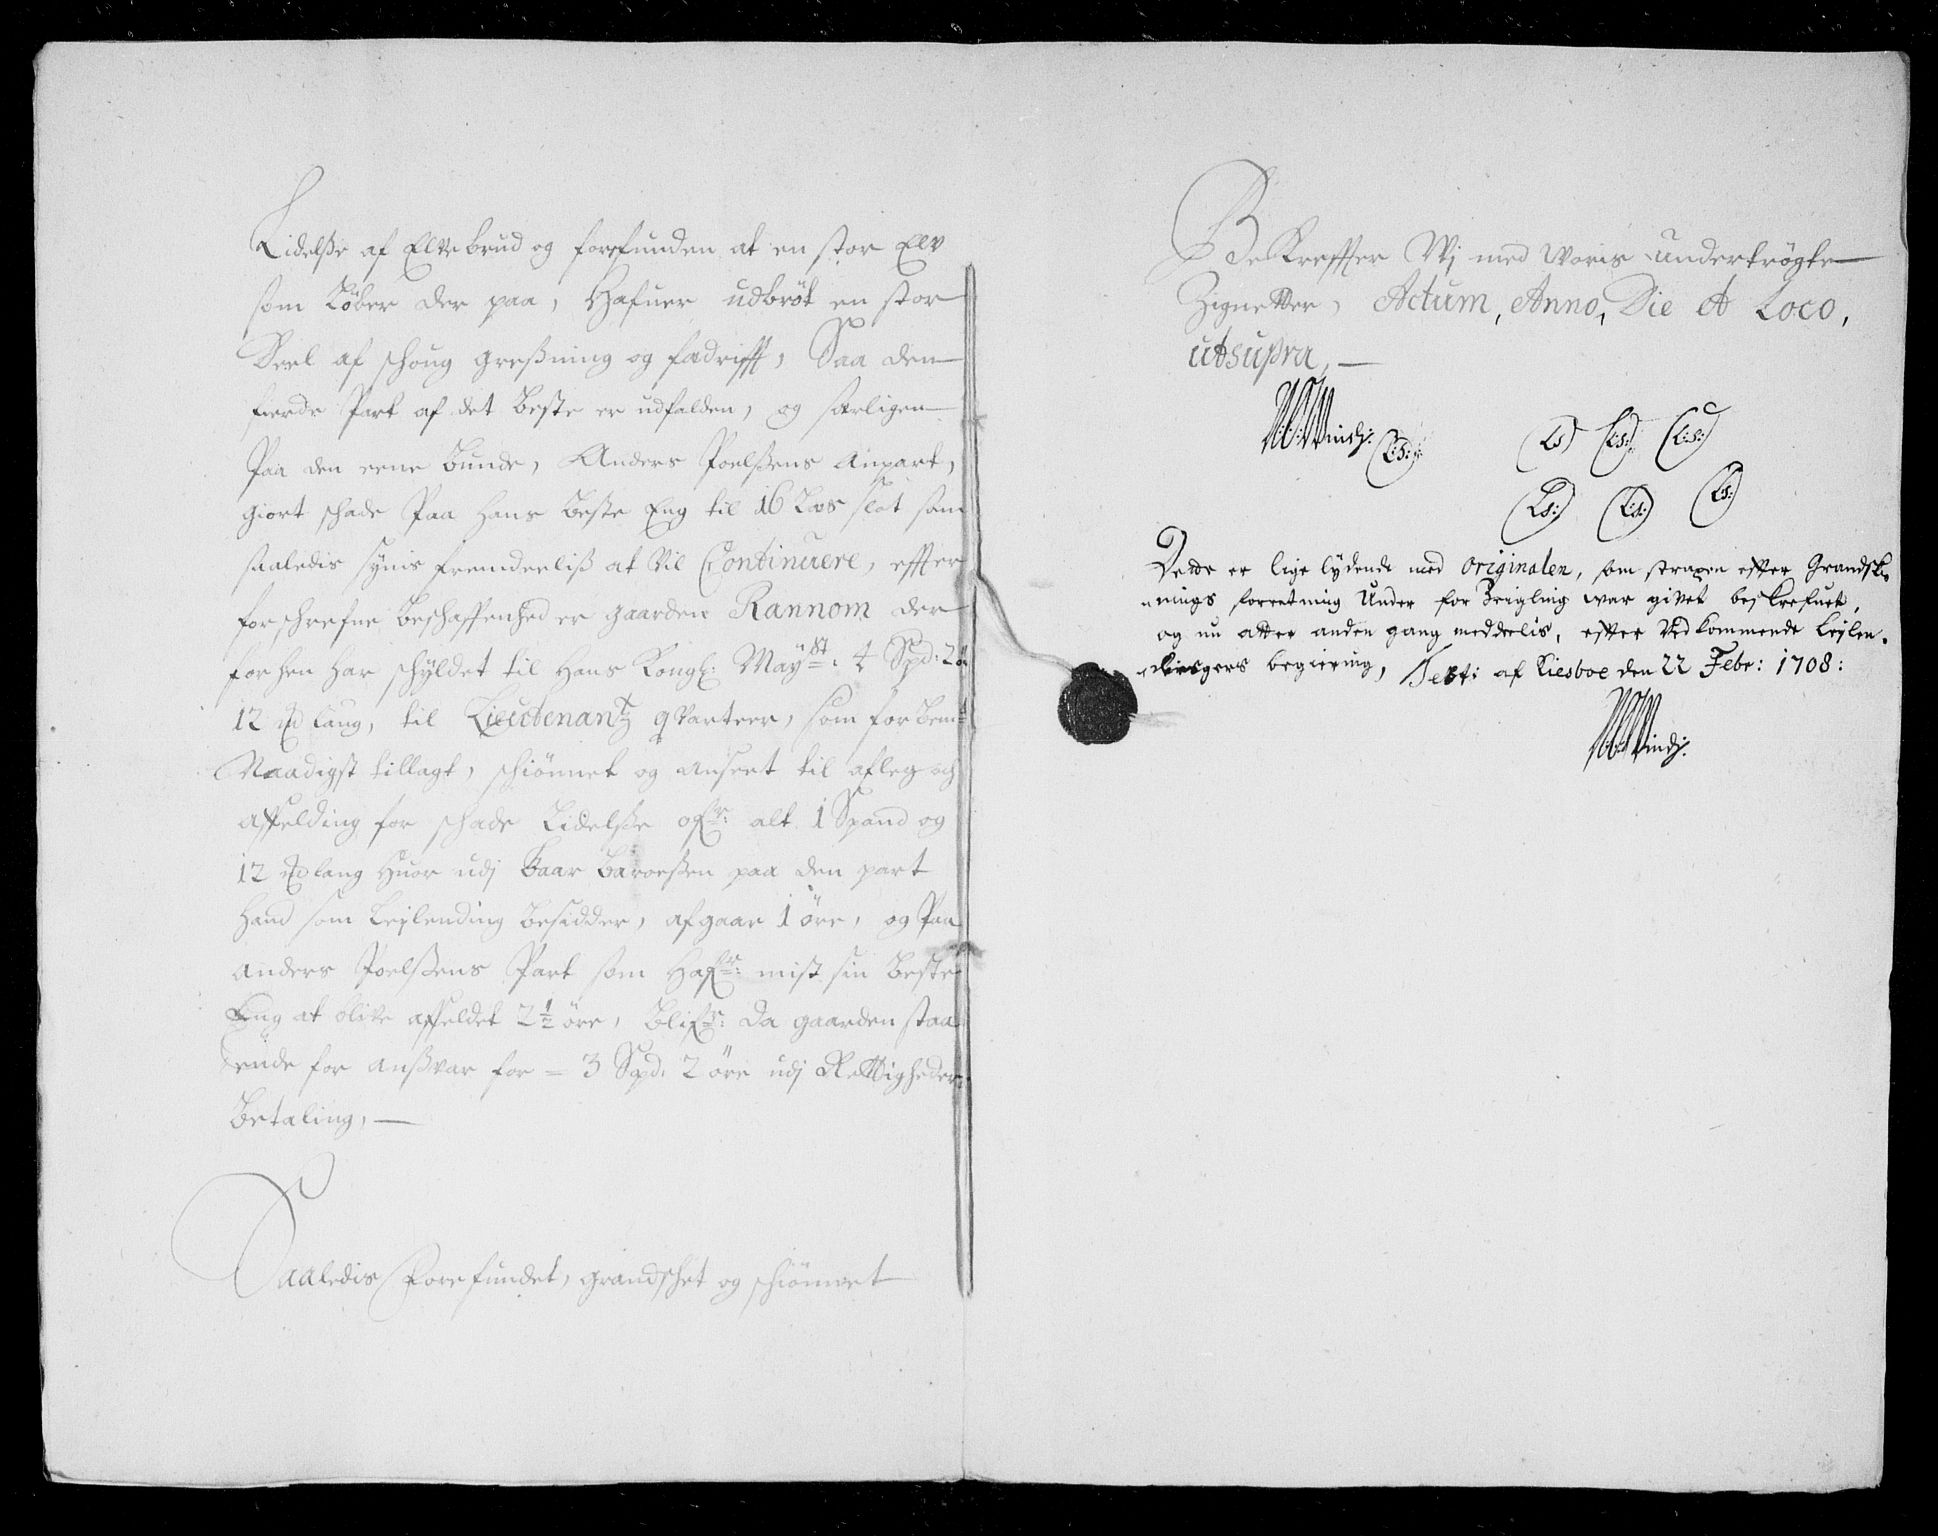 Lidelsse af Elvebrud og forefunden at en stor Elv
som Løber der paa, Hafuer udbrøt en stor
Deel af schoug gressning og fædrifft, Saa den
fierde Part af det beste er udfalden, og særligen
Paa den eene bunde, Anders Poelssens anpart,
giort schade Paa hans beste Eng til 16 Læs slot som
saaledis synis fremdeeliss at vil Continuere, effter
forschrefne beschaffenhed er gaarden Rannom der
forhen har schyldet til Hans Kongl: Mayst: 4 Spd: 2 ør
12 Md laug, til Lieutenantz qvarteer, som for bemt
Naadigst tillagt, schiønnet og anseet til afleg og
affelding for schade Lidelsse ofr: alt 1 Spand og
12 Md lang huor udj Baar Baroessen paa den part
hand som Leylending besidder, afgaar 1 øre, og Paa
Anders Poelssens Part som Hafr: mist sin beste
Eng at blive affeldet 2½ øre, blifr: da gaarden staa
ende for anssvar for = 3 Spd. 2 øre udj Rettigheders
betaling, —
Saaledis Forefundet, grandschet og schiønnet
Bekreffter Wj med Woris undertrögte
Zignetter, Actum, Anno, Die et Loco,
ut supra, —
Winds: (L:S:)
(LS) (L:S:) (L:S:)
(LS:) (L:S:) (LS:)
Dette er lige lydende med Originalen, som strapen effter Grandsk-
nings forretning Under forZeigling war givet beskrefuet,
og nu atter anden gang meddeelis, effter Vedkommende Leylen-
dingers begiering, Test: af Kiesboe den 22 Febr: 1708:
Winds: